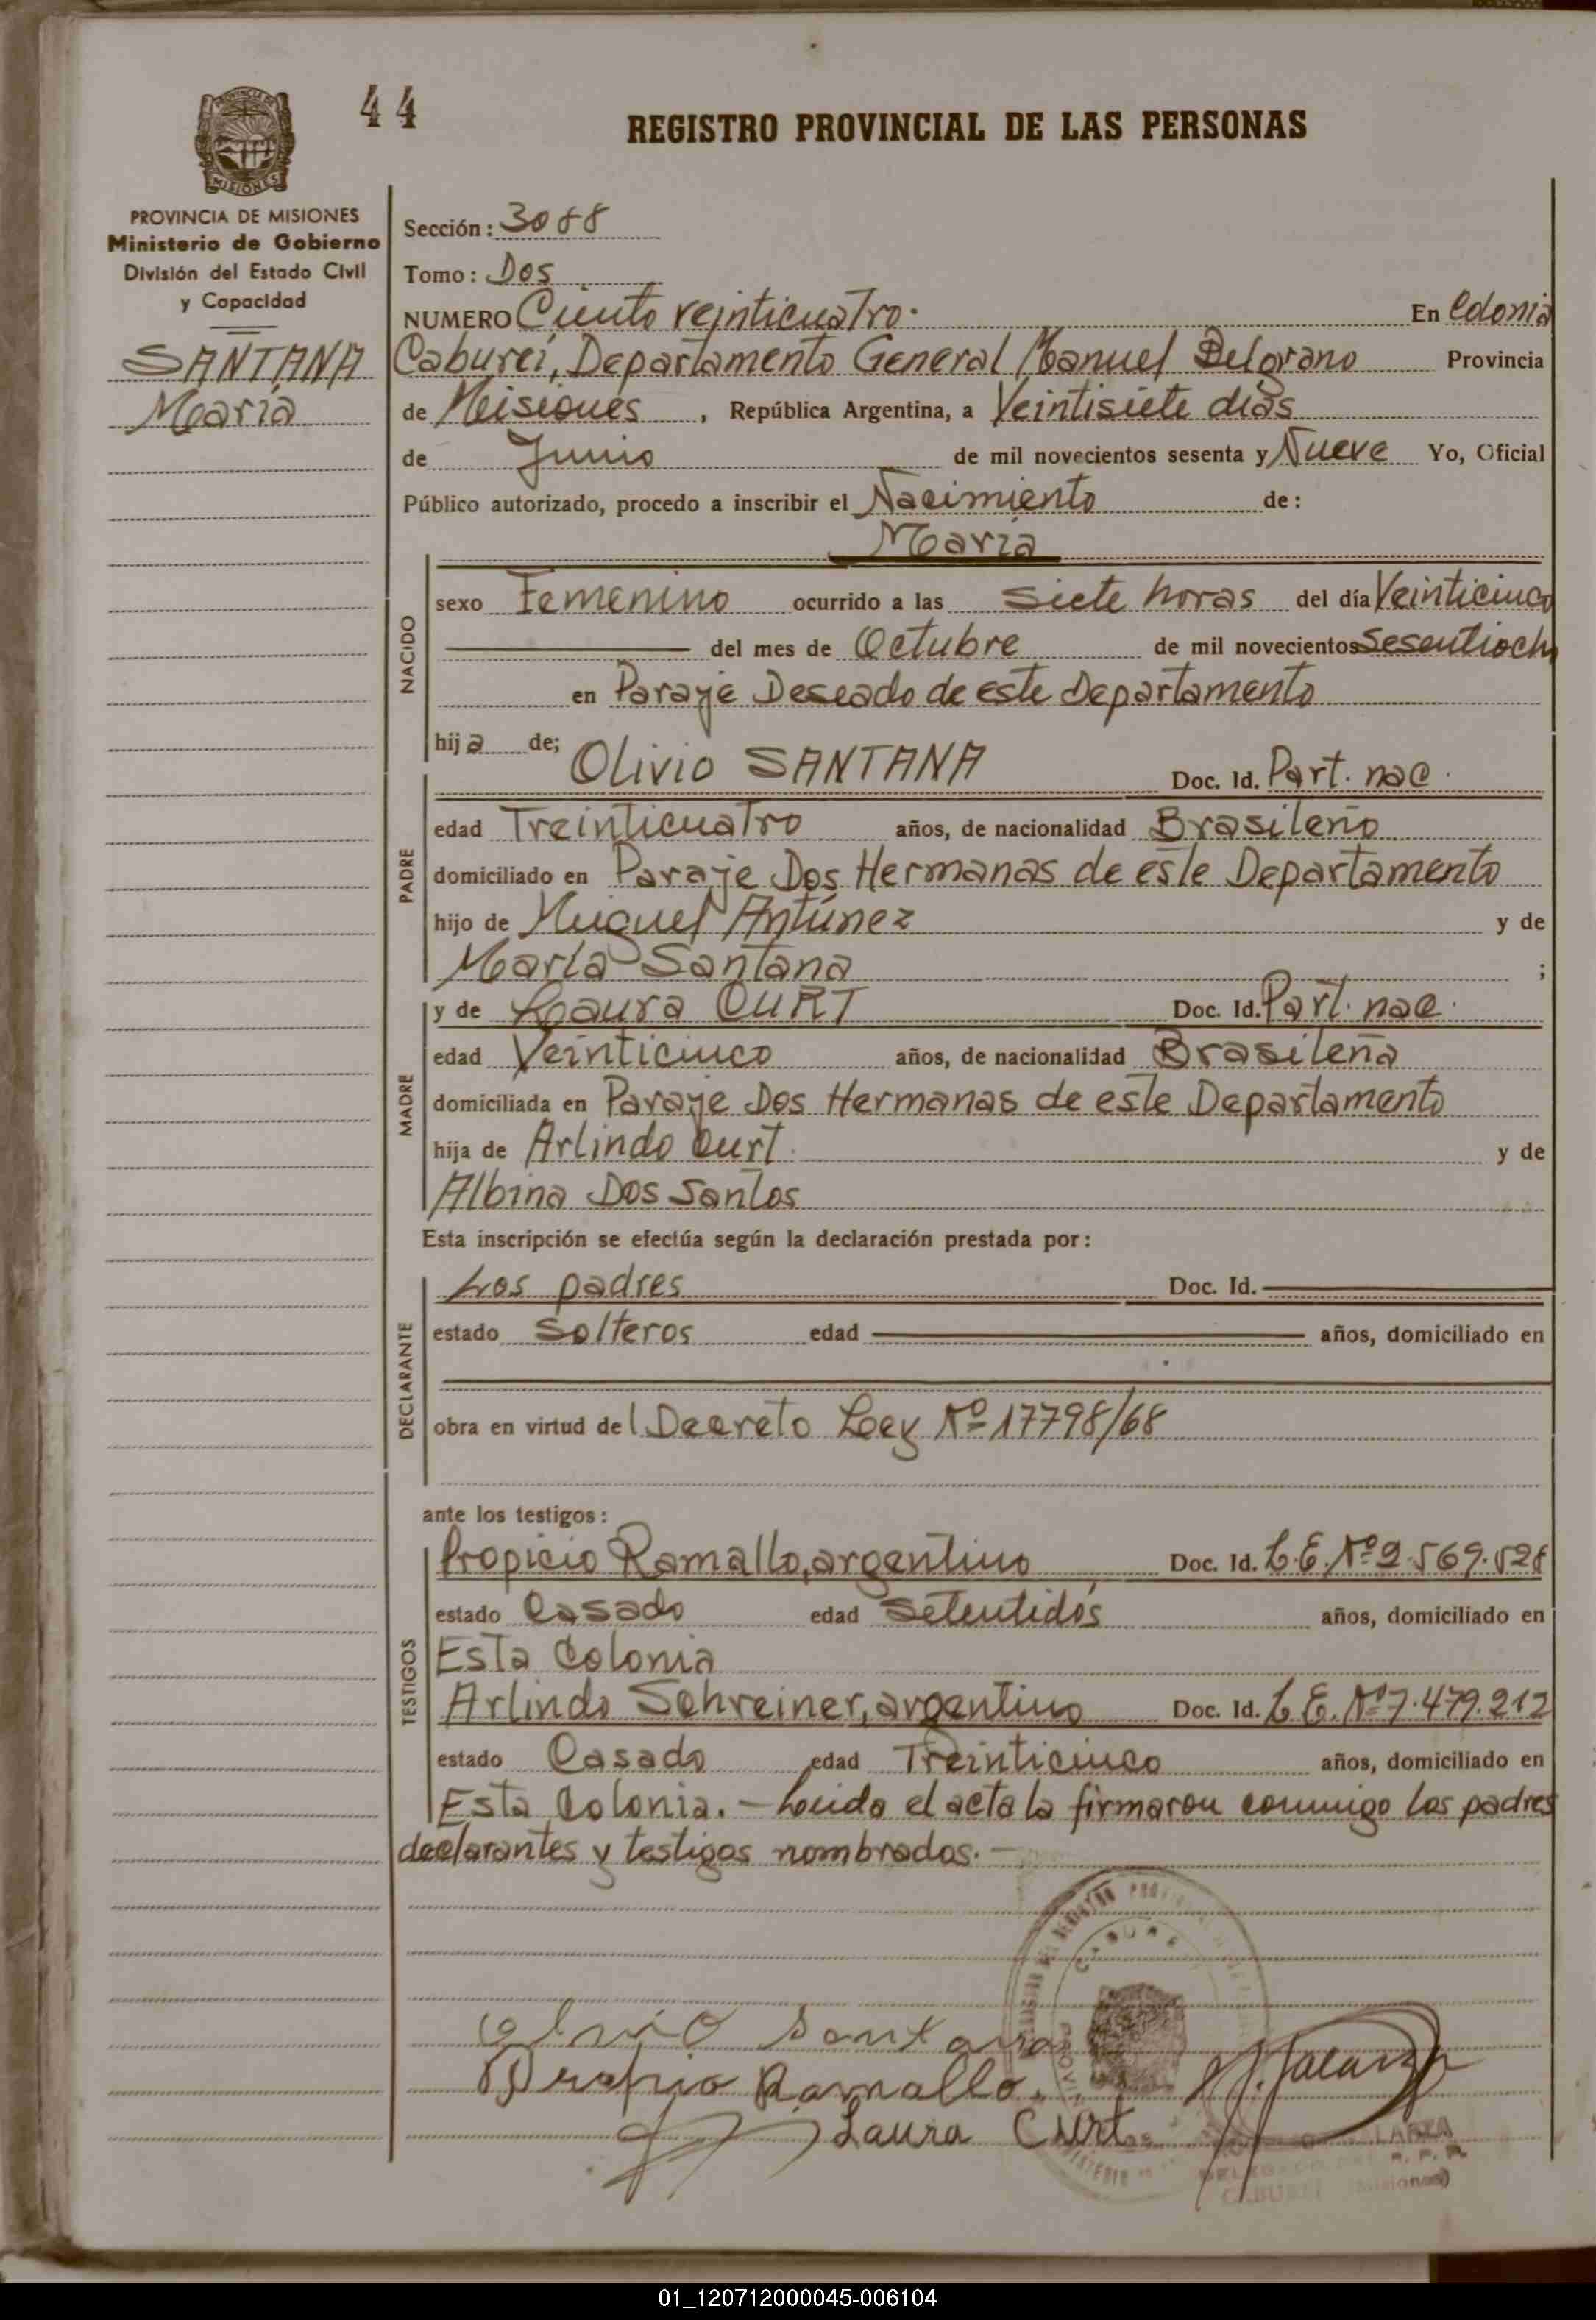 44
REGISTRO PROVINCIAL DE LAS PERSONAS
PROVINCIA DE MISIONES
Ministerio de Gobierno
División del Estado Civil
y Capacidad
SANTANA
María
Sección: 3088
Tomo: Dos
NUMERO Ciento veinticuatro. En Colonia
Caburei, Departamento General Manuel Belgrano Provincia
de Misiones, República Argentina, a Veintisiete días
de Junio de mil novecientos sesenta y Nueve Yo, Oficial
Público autorizado, procedo a inscribir el Nacimiento de:
María
NACIDO
sexo Femenino ocurrido a las siete horas del día Veinticinco
del mes de Octubre de mil novecientos Sesentioch
en Paraje Deseado de este Departamento
hija de; Olivio SANTANA Doc. Id. Part. nac.
PADRE
edad Treinticuatro años, de nacionalidad Brasileño
domiciliado en Paraje Dos Hermanas de este Departamento
hijo de Miguel Antúnez y de
María Santana ;
y de Laura CURT Doc. Id. Part. nac.
MADRE
edad Veinticinco años, de nacionalidad Brasileña
domiciliada en Paraje Dos Hermanas de este Departamento
hija de Arlindo Curt. y de
Albina Dos Santos
Esta inscripción se efectúa según la declaración prestada por:
DECLARANTE
Los padres Doc. Id.
estado Solteros edad años, domiciliado en
obra en virtud del Decreto Ley Nº 17798/68
ante los testigos:
TESTIGOS
Propicio Ramallo, argentino Doc. Id. L.E. Nº 2.569.528
estado Casado edad Setentidós años, domiciliado en
Esta Colonia
Arlindo Schreiner, argentino Doc. Id. L.E. Nº 7.479.212
estado Casado edad Treinticinco años, domiciliado en
Esta Colonia. - Leída el acta la firmaron conmigo los padres
declarantes y testigos nombrados. -
Olivio Santana
Propicio Ramallo.
Laura Curt
01_120712000045-006104